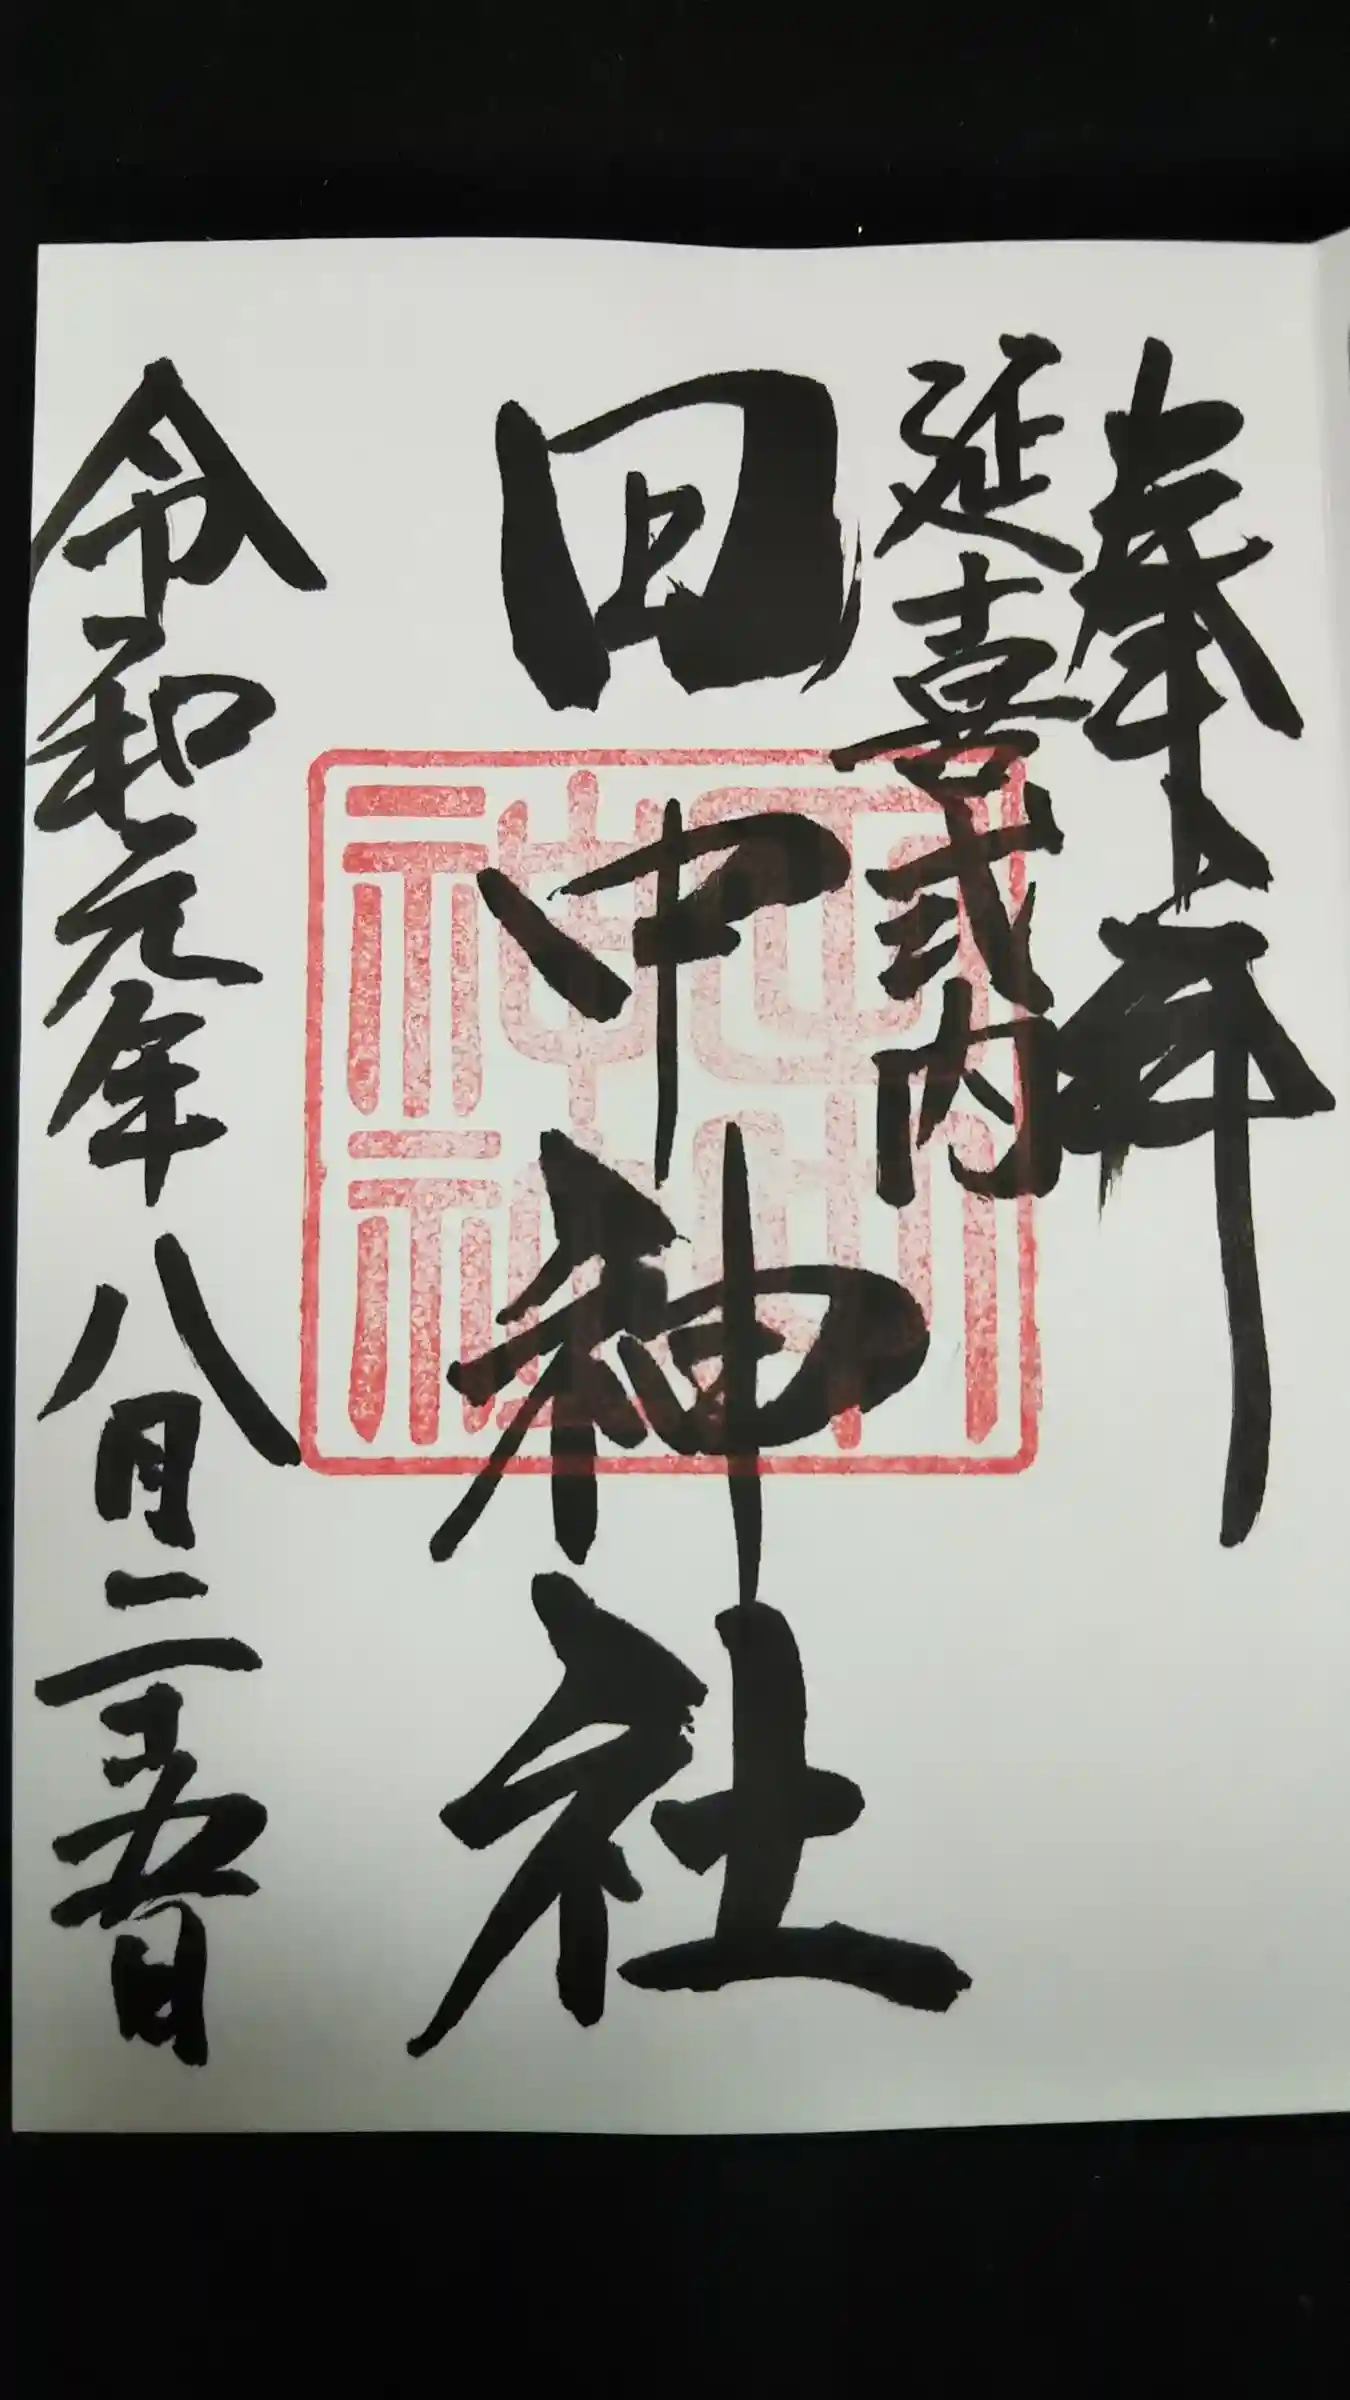 奉拝
延喜式内
田中神社
田中神社
令和元年八月二十五日